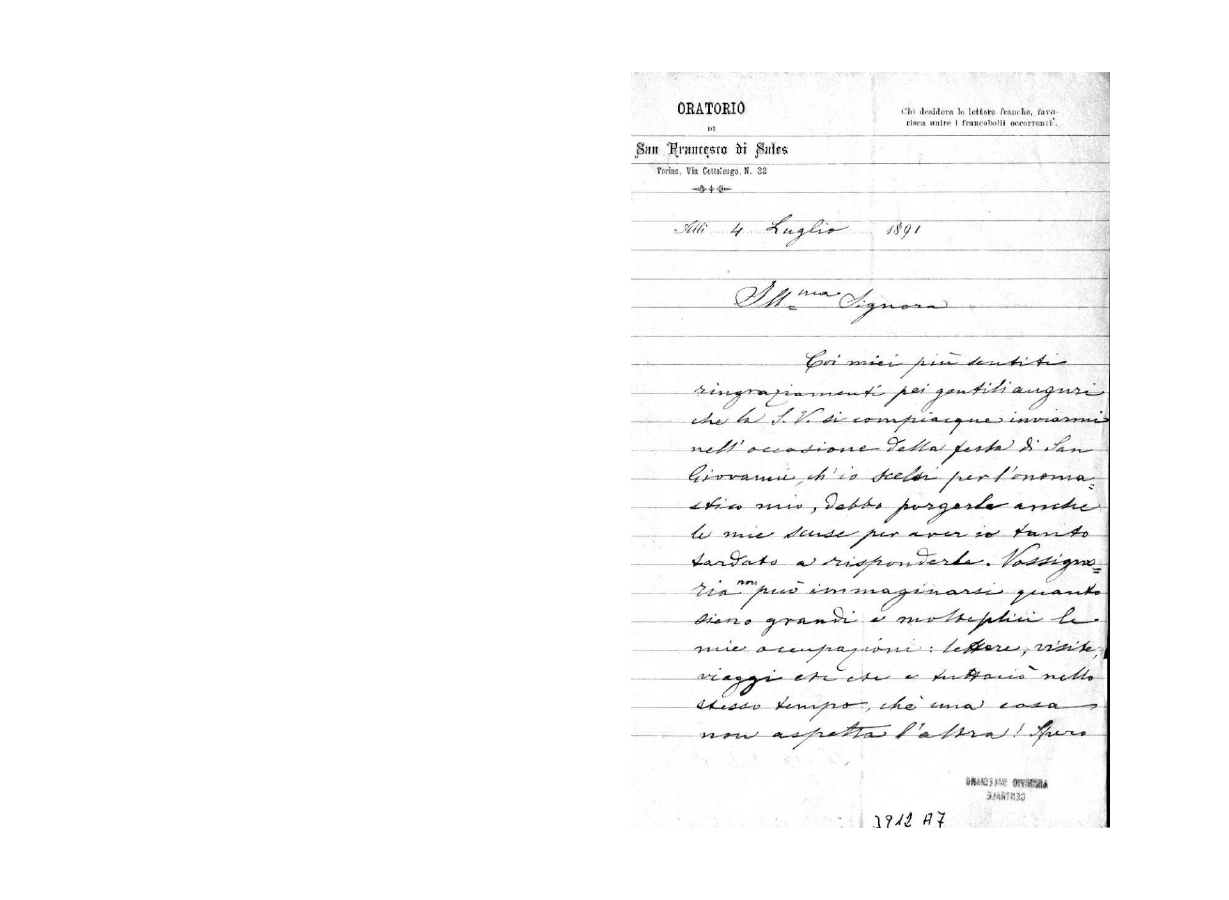 ORATORIO
DI
San Francesco di Sales
Torino, Via Cottolengo, N. 32
Chi desidera le lettere franche, favo-
risca unire i francobolli occorrenti.
Alli 4 Luglio 1891
Ill.ma Signora
Coi miei più sentiti
ringraziamenti pei gentili auguri
che la S. V. si compiacque inviarmi
nell'occasione della festa di San
Giovanni, ch'io scelsi per l'onoma=
stico mio, debbo porgerle anche
le mie scuse per aver io tanto
tardato a risponderle. Vossigno=
ria non può immaginarsi quanto
sieno grandi e molteplici le
mie occupazioni: lettere, visite,
viaggi ecc ecc e tuttociò nello
stesso tempo, chè una cosa
non aspetta l'altra! Spero
ARCHIVIO SALESIANO
CENTRALE
3912 A7